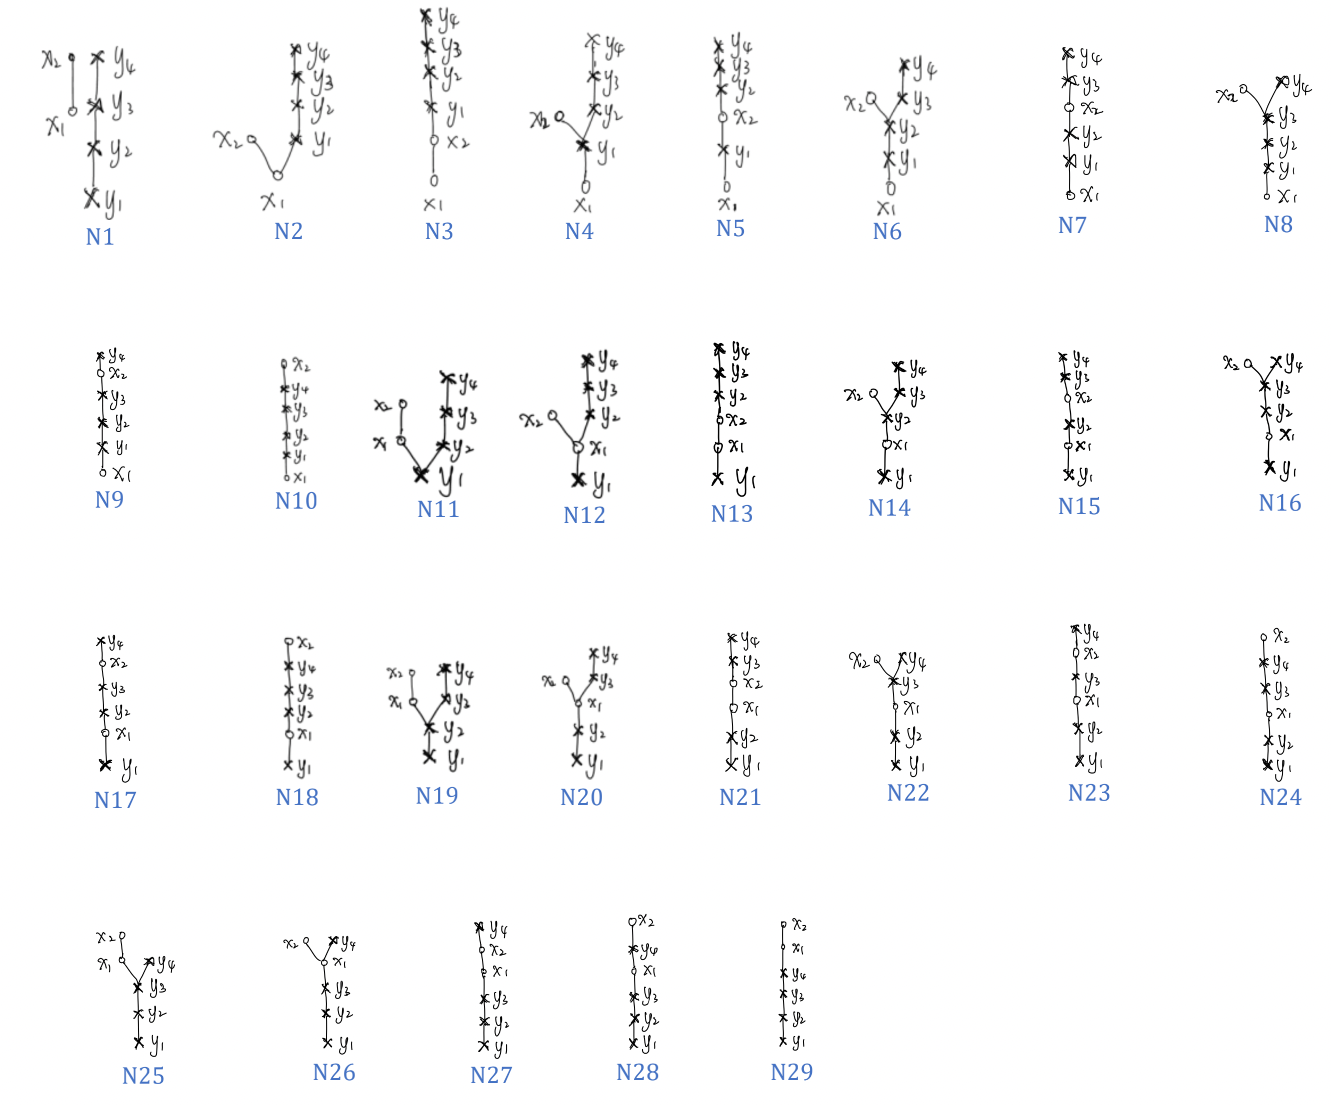 x₂ y₄
x₁ y₃
y₂
y₁
N1
y₄
y₃
y₂
x₂ y₁
x₁
N2
y₄
y₃
y₂
y₁
x₂
x₁
N3
y₄
y₃
x₂ y₂
y₁
x₁
N4
y₄
y₃
y₂
x₂
y₁
x₁
N5
y₄
x₂ y₃
y₂
y₁
x₁
N6
y₄
y₃
x₂
y₂
y₁
x₁
N7
x₂ y₄
y₃
y₂
y₁
x₁
N8
y₄
x₂
y₃
y₂
y₁
x₁
N9
x₂
y₄
y₃
y₂
y₁
x₁
N10
y₄
x₂ y₃
x₁ y₂
y₁
N11
y₄
y₃
x₂ y₂
x₁
y₁
N12
y₄
y₃
y₂
x₂
x₁
y₁
N13
y₄
x₂ y₃
y₂
x₁
y₁
N14
y₄
y₃
x₂
y₂
x₁
y₁
N15
x₂ y₄
y₃
y₂
x₁
y₁
N16
y₄
x₂
y₃
y₂
x₁
y₁
N17
x₂
y₄
y₃
y₂
x₁
y₁
N18
x₂ y₄
x₁ y₂
y₂
y₁
N19
y₄
x₂ y₃
x₁
y₂
y₁
N20
y₄
y₃
x₂
x₁
y₂
y₁
N21
x₂ y₄
y₃
x₁
y₂
y₁
N22
y₄
x₂
y₃
x₁
y₂
y₁
N23
x₂
y₄
y₃
x₁
y₂
y₁
N24
x₂
x₁ y₄
y₃
y₂
y₁
N25
x₂ y₄
x₁
y₃
y₂
y₁
N26
y₄
x₂
x₁
y₃
y₂
y₁
N27
x₂
y₄
x₁
y₃
y₂
y₁
N28
x₂
x₁
y₄
y₃
y₂
y₁
N29